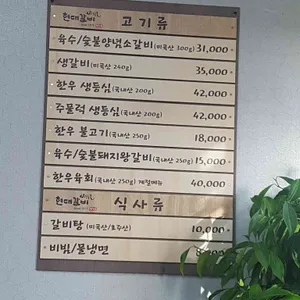 현대갈비 고기류
육수/숯불양념소갈비(미국산 300g) 31,000
생갈비(미국산 240g) 35,000
한우 생등심(국내산 200g) 42,000
주물럭 생등심(국내산 200g) 42,000
한우 불고기(국내산 250g) 18,000
육수/숯불돼지왕갈비(국내산 250g) 15,000
한우육회(국내산 250g) 계절메뉴 40,000
현대갈비 식사류
갈비탕(미국산/호주산) 10,000
비빔/물냉면